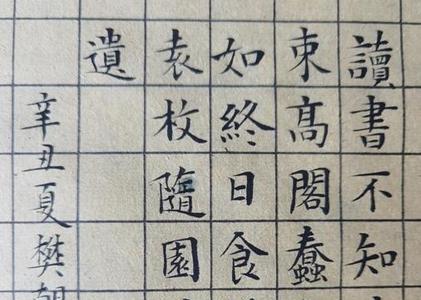 讀書不知
束高閣蠢
如終日食
袁枚隨園
遺
辛丑夏樊